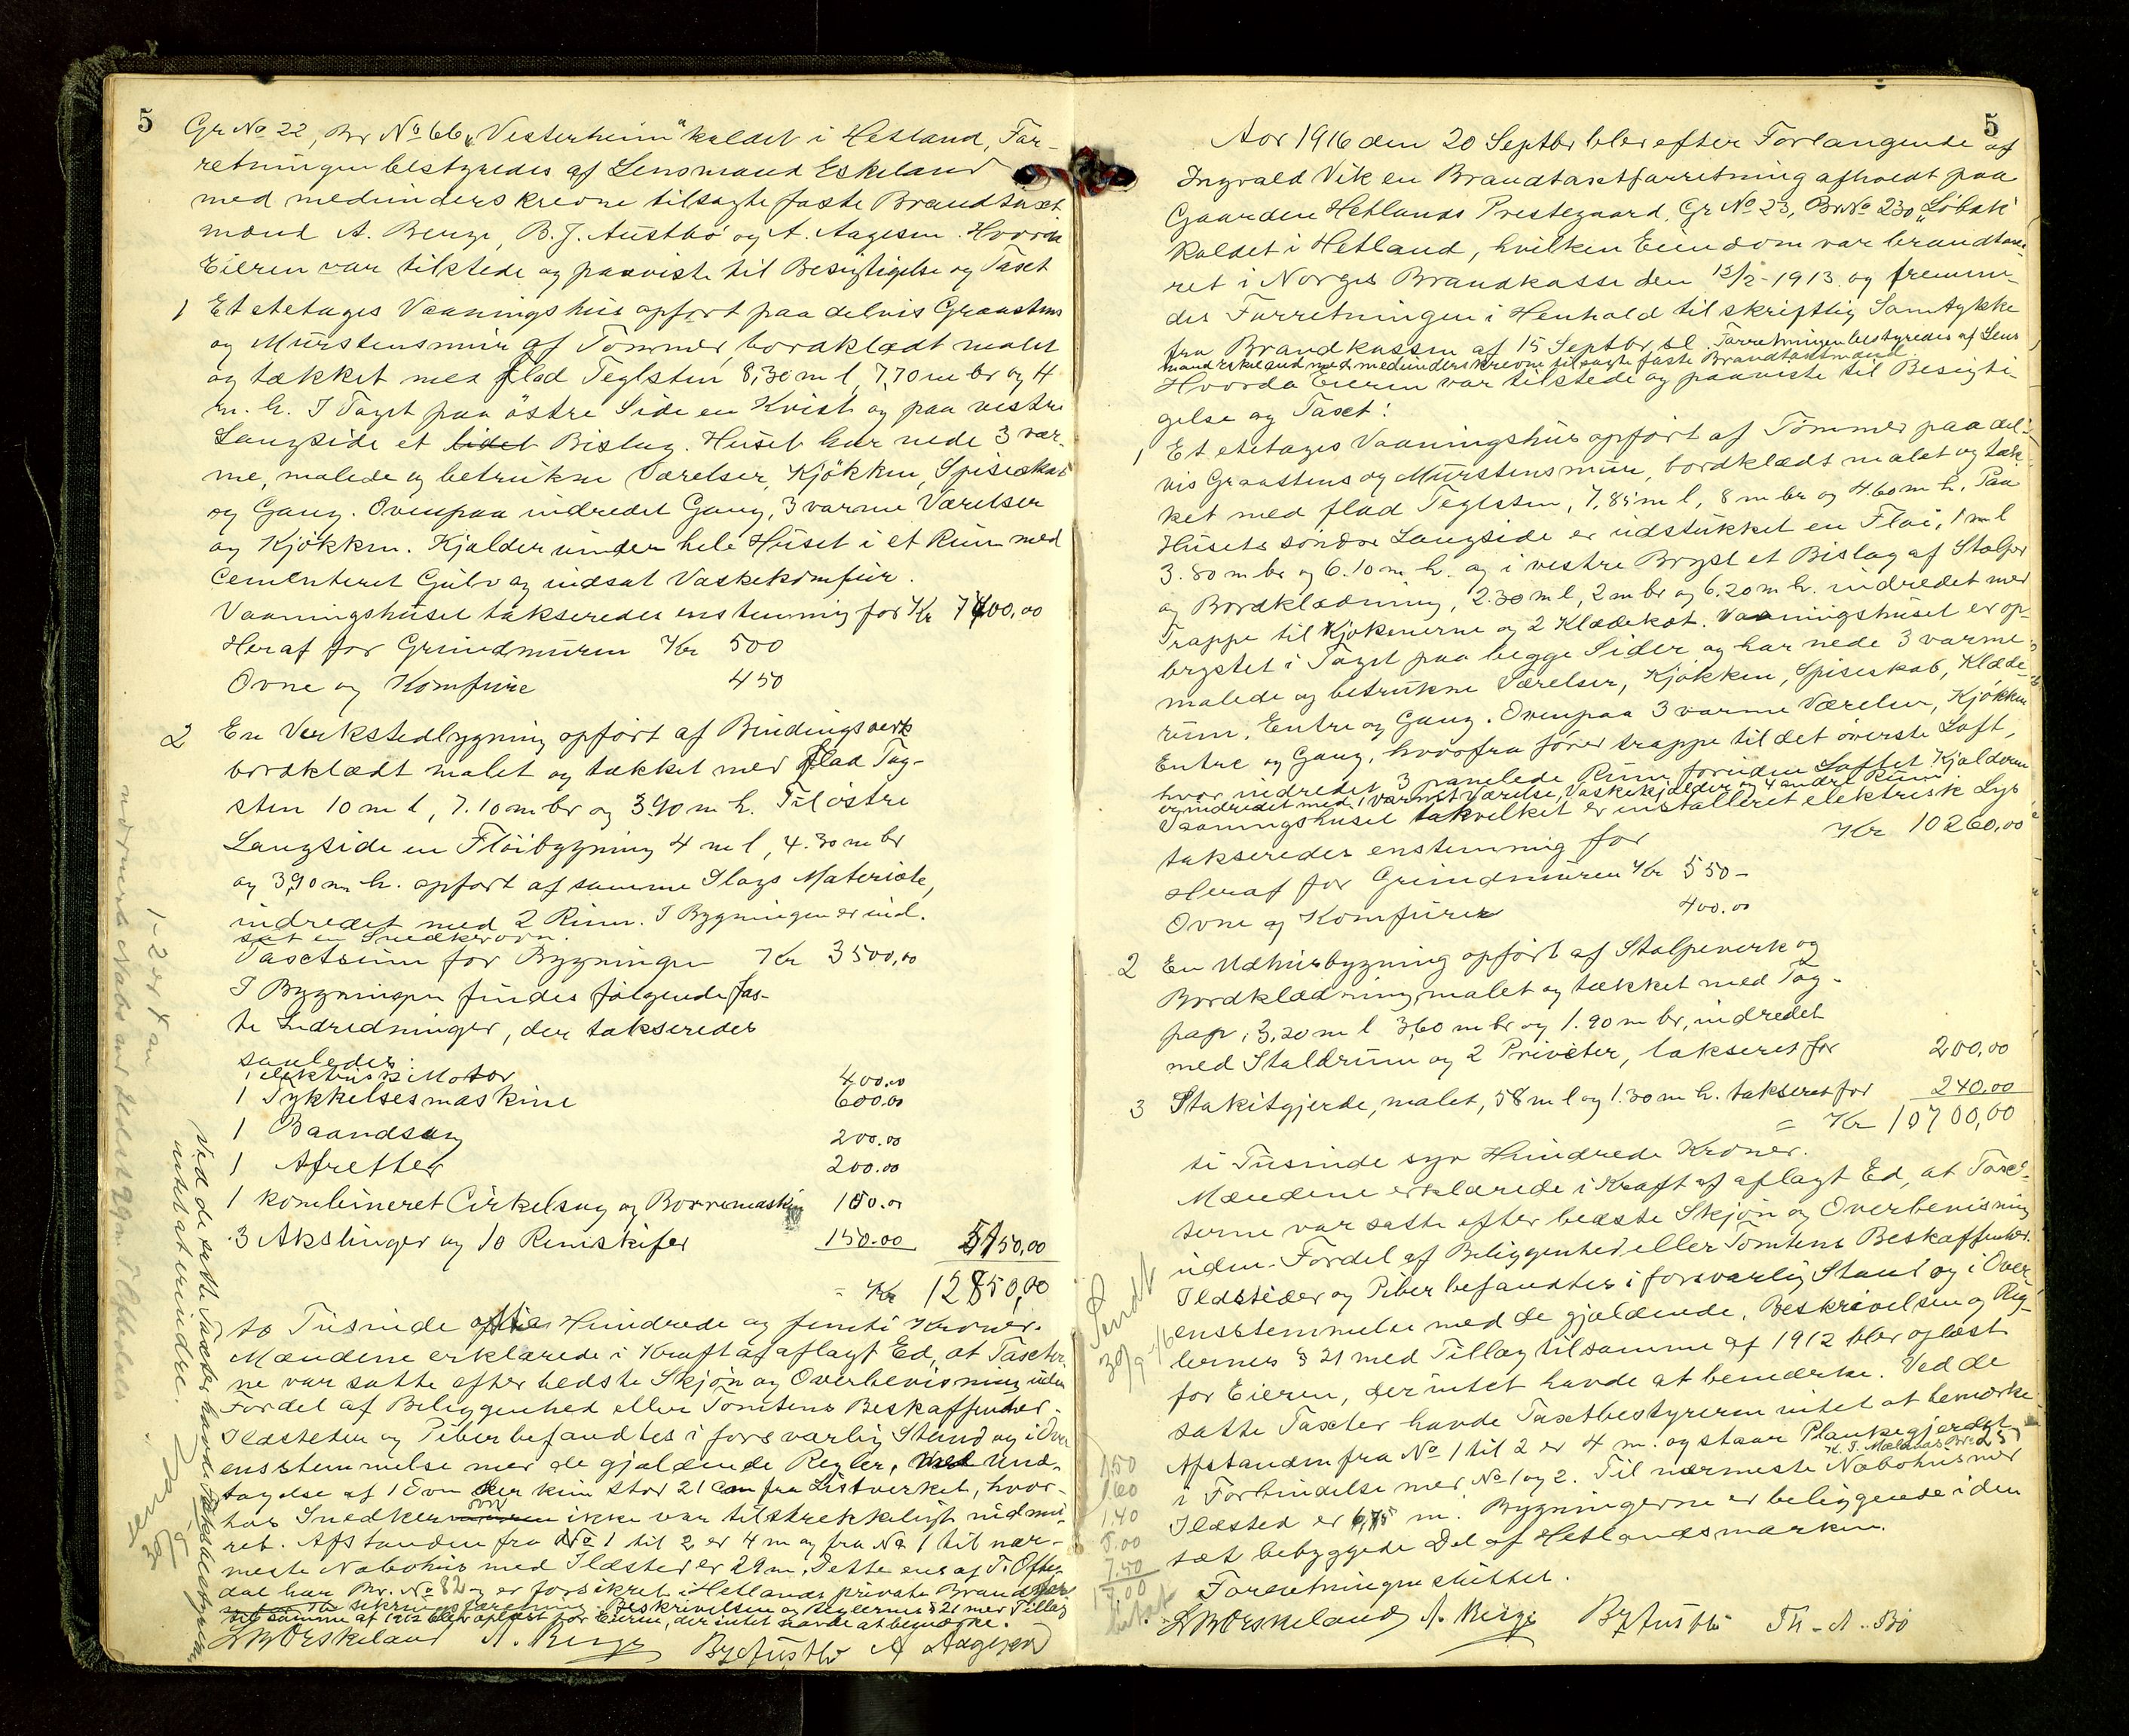 5
Gr No 22, Br No 66 „Vesterheim" kaldet i Hetland, For-
retningen bestyredes af Lensmand Eskeland
med medunderskrevne tilsagte faste Brandtaxt
mænd A. Berge, B. J. Austbö og A. Aagesen. Hvorda
Eieren var tilstede og paaviste til Besigtigelse og Taxt
1 Et etetages Vaaningshus opfört paa delvis Graastens
og Murstensmur af Tömmer, bordklædt malet
og tækket med flad Teglsten 8,30 m l, 7,70 m br og 4
m. h. I Taget paa östre Side en Kvist og paa vestre
Langside et lidet Bislag. Huset har nede 3 var-
me, malede og betrukne Værelser, Kjökken, Spiseskab
og Gang. Ovenpaa indredet Gang, 3 varme Værelser
og Kjökken. Kjelder under hele Huset i et Rum med
Cementeret Gulv og indsat Vaskekomfur.
Vaaningshuset takseredes enstemmig for Kr 7400,00
Heraf for Grundmuren Kr 500
Ovne og Komfure 450
2 En Verkstedbygning opfört af Bindingsverk
bordklædt malet og tækket med flad Tag-
sten 10 m l, 7.10 m br og 3.90 m h. Til östre
Langside en Flöibygning 4 m l, 4.30 m br
og 3,90 m h. opfört af samme Slags Materiale,
indredet med 2 Rum. I Bygningen er ind-
sat en Snedkerovn.
Taxtsum for Bygningen Kr 3500,00
I Bygningen findes fölgende fas-
te Indredninger, der takseredes
saaledes:
1 elektrisk Motor 400.00
1 Tykkelsesmaskine 600.00
1 Baandsag 200.00
1 Afretter 200.00
1 kombineret Cirkelsag og Borremaskin 100.00
3 Akslinger og 10 Remskifer 150.00 5150,00
= Kr 12850,00
to Tusinde otte Hundrede og femti Kroner.
Mændene erklærede i Kraft af aflagt Ed, at Taxter-
ne var satte efter bedste Skjön og Overbevisning uden
Fordel af Beliggenhed eller Tomtens Beskaffenhed.
Ildsteder og Piber befandtes i forsvarlig Stand og i Over
ensstemmelse med de gjældende Regler, med Und-
tagelse af 1 Ovn der kun stod 21 Cm fra Listverket, hvor-
hos Snedkerovnen ikke var tilstrekkeligt indmu-
ret. Afstanden fra No 1 til 2 er 4 m og fra No 1 til nær-
meste Nabohus med Ildsted er 29 m. Dette eies af T. Ofte-
dal har Br. No 82 og er forsikret i Hetlands private Brandfor
sikringsforening. Beskrivelsen og Reglernes § 21 med Tillæg
til samme af 1912 blev oplæst for Eieren, der intet havde at bemærke.
L W Eskeland A. Berge B J Austbö A Aagesen
Ved de satte Taxter havde Takstbestyreren
intet at erindre.
Sendt
30/9
1-2 er 4 m
nærmeste Nabo med Ildsted 29 m T. Oftedal
5
Aar 1916 den 20 Septbr blev efter Forlangende af
Ingvald Vik en Brandtaxtforretning afholdt paa
Gaarden Hetlands Prestegaard, Gr No 23, Br No 230 „Löbak"
kaldet i Hetland, hvilken Eiendom var brandtaxe-
ret i Norges Brandkasse den 12/2-1913. og fremmi-
des Forretningen i Henhold til skriftlig Samtykke
fra Brandkassen af 15 Septbr sl. Forretningen bestyredes af Lens
mand Eskeland med medunderskrevne tilsagte faste Brandtaxtmænd
Hvorda Eieren var tilstede og paaviste til Besigti-
gelse og Taxt:
1 Et etetages Vaaningshus opfört af Tömmer paa del-
vis Graastens og Murstensmure, bordklædt malet og tæk-
ket med flad Teglsten, 7,85 m l, 8 m br og 4.60 m h. Paa
Husets söndre Langside er udstukket en Flöi, 1 m l
3.80 m br og 6.10 m h. og i vestre Bryst et Bislag af Stolper
og Bordklædning, 2.30 m l, 2 m br og 6.20 m h. indredet med
Trappe til Kjöknerne og 2 Klædekot. Vaaningshuset er op-
brystet i Taget paa begge Sider og har nede 3 varme
malede og betrukne Værelser, Kjökken, Spiseskab, Klæde-
rum, Entre og Gang. Ovenpaa 3 varme Værelser, Kjökken
Entre og Gang, hvorfra förer trappe til det överste Loft,
hvor indredet 3 panelede Rum foruden Loftet. Kjelderen
er indredet med 1 varmt Værelse, Vaskekjelder og 4 andre Rum
Vaaningshuset i hvilket er installeret elektrisk Lys
takseredes enstemmig for Kr 10260,00
Heraf for Grundmuren Kr 550-
Ovne og Komfurer 400.00
2 En Udhusbygning opfört af Stolpeverk og
Bordklædning, malet og tækket med Tag-
pap, 3,20 m l 3,60 m br og 1.90 m br, indredet
med Staldrum og 2 Priveter, takseret for 200,00
3 Stakitgjerde, malet, 58 m l og 1.30 m h. takseret for 240.00
= Kr 10700,00
ti Tusinde syv Hundrede Kroner.
Mændene erklærede i Kraft af aflagt Ed, at Tax-
terne var satte efter bedste Skjön og Overbevisning
uden Fordel af Beliggenhed eller Tomtens Beskaffenhed.
Ildsteder og Piber befandtes i forsvarlig Stand og i Over-
ensstemmelse med de gjældende. Beskrivelsen og Reg-
lernes § 21 med Tillæg til samme af 1912 blev oplæst
for Eieren, der intet havde at bemærke. Ved de
satte Taxter havde Taxtbestyreren intet at bemærke
Afstanden fra No 1 til 2 er 4 m. og staar Plankegjerdet
i Forbindelse med No 1 og 2. Til nærmeste Nabohus med
Ildsted er 6,75 m. Bygningerne er beliggende i den
tæt bebyggede Del af Hetlandsmarken.
Forretningen sluttet.
L W Eskeland A. Berge B J Austbö Th. A. Bö
Sendt
30/9-16
1.50
1.60
1.40
5.00
7.50
17.00
betalt